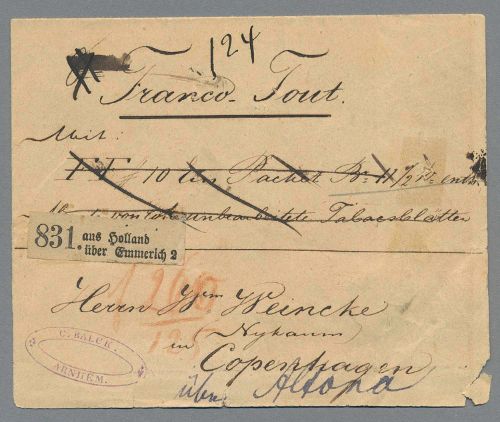 124
Franco-Tout.
Mit:
FF # 10 ein Packet Br. 11 1/2 enth.
unbearbeitete Tabacsblätter
831. aus Holland
über Emmerich 2
Herrn Wm Weincke
in Nyhavn
Copenhagen
über Altona
C. BALCK.
ARNHEM.